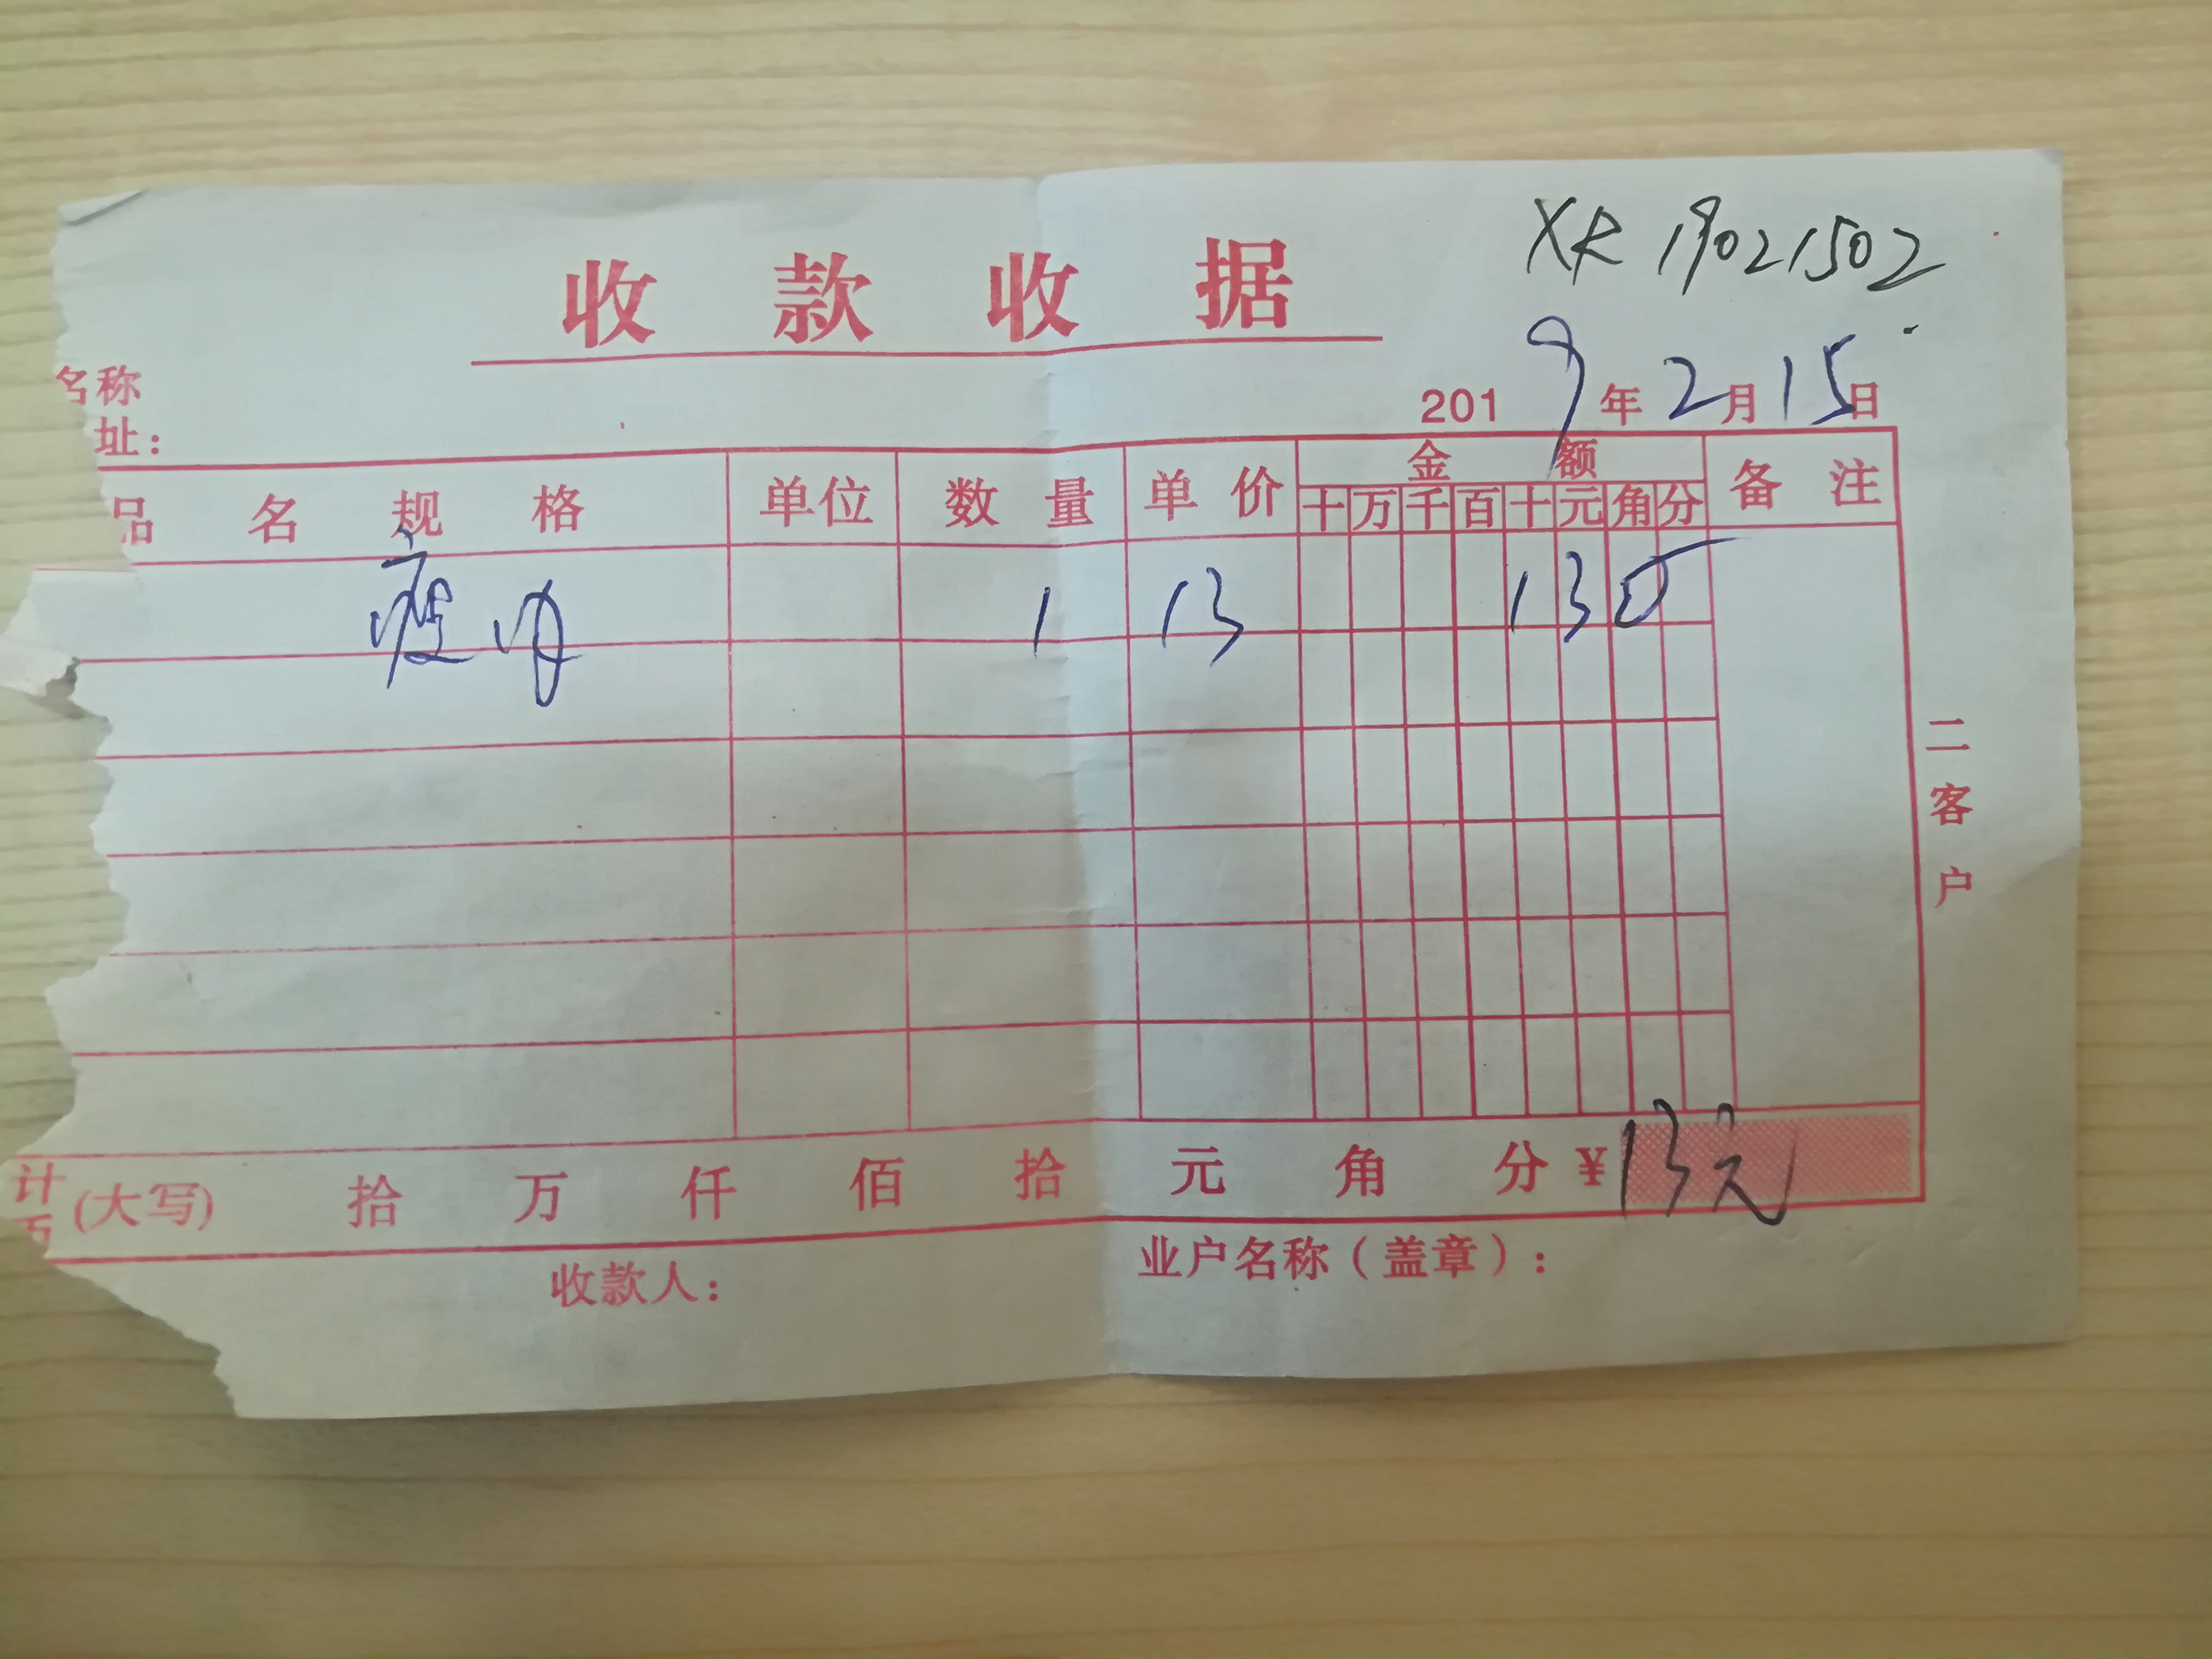 XR 19021502
收款收据
名称
2019年2月15日
址：
品名规格 单位 数量 单价 金额 备注
十万千百十元角分
瘦肉 1 13 130
二客户
计(大写) 拾 万 仟 佰 拾 元 角 分 ¥13元
收款人： 业户名称（盖章）：